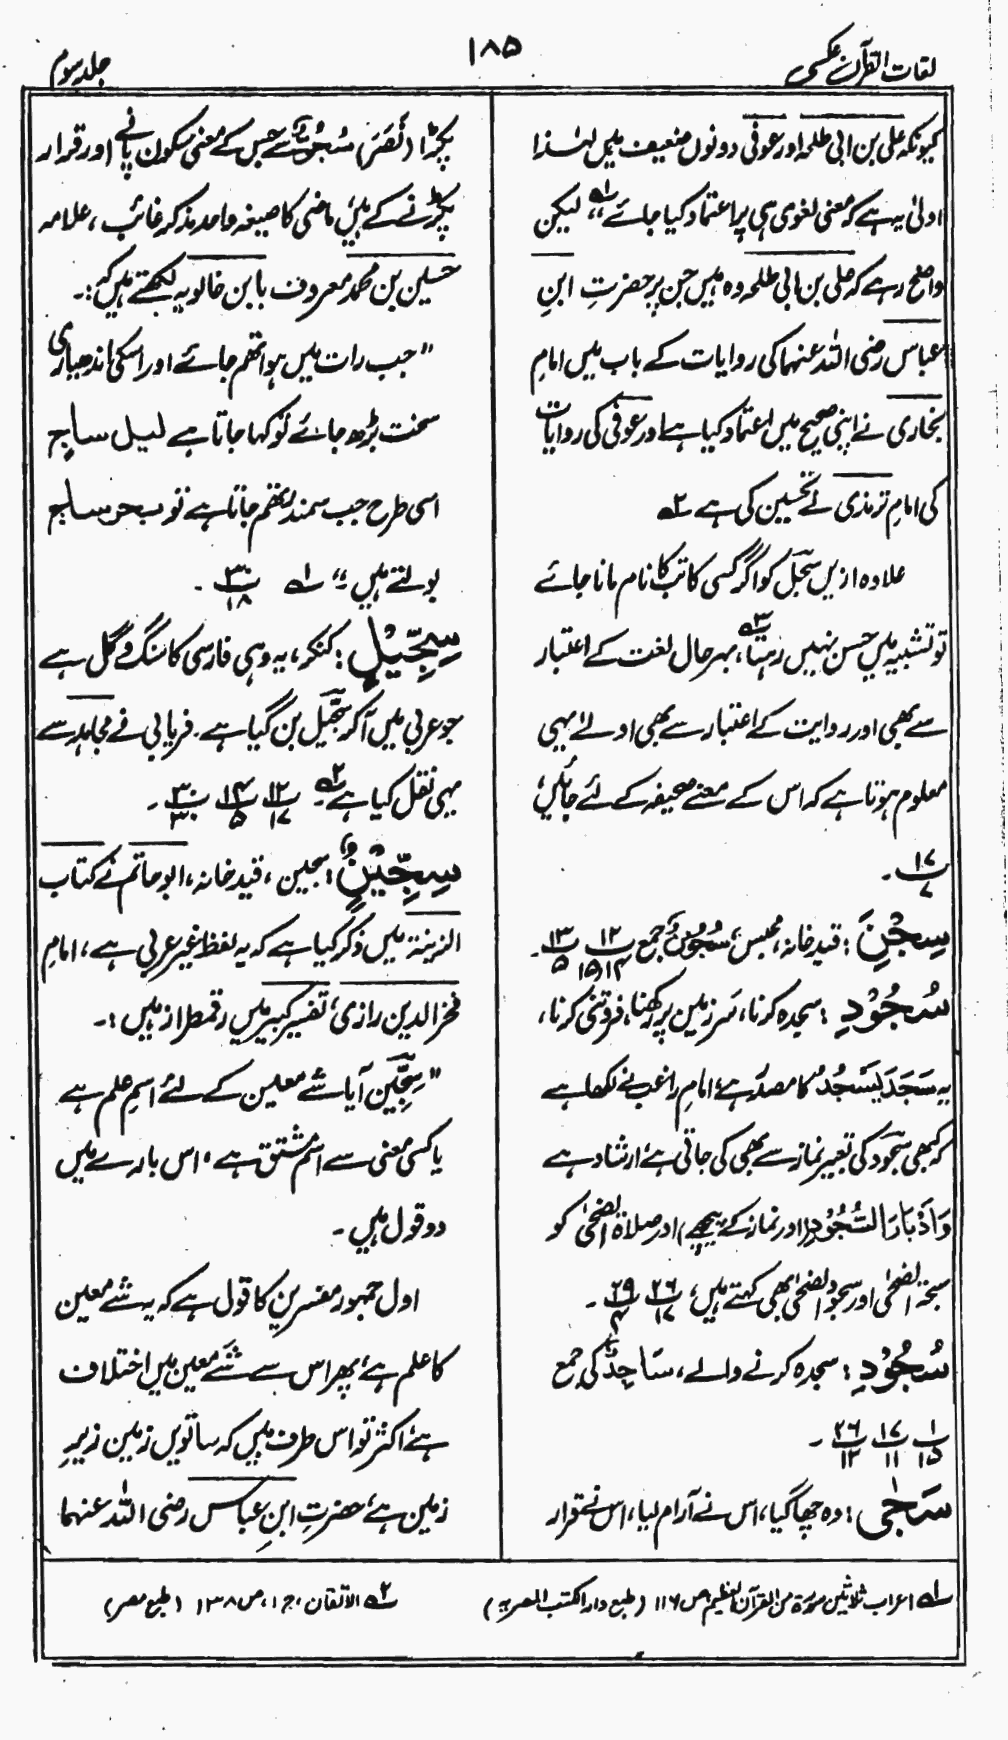 لغات القرآن عکسی
۱۸۵
جلد سوم
کیونکہ علی بن ابی طلحہ اور عوفی دونوں ضعیف ہیں لہٰذا
اولیٰ یہ ہے کہ معنی لغوی ہی پر اعتماد کیا جائے لہ،، لیکن
واضح رہے کہ علی بن ابی طلحہ وہ ہیں جن پر حضرتِ ابنِ
عباس رضی اللہ عنہما کی روایات کے باب میں امام
بخاری نے اپنی صحیح میں اعتماد کیا ہے اور عوفی کی روایات
کی امام ترمذی نے تحسین کی ہے ۲ہ
علاوہ ازیں سجل کو اگر کسی کاتب کا نام مانا جائے
تو تشبیہ میں حسن نہیں رہتا ۳ہ، بہر حال لغت کے اعتبار
سے بھی اور روایت کے اعتبار سے بھی اولےٰ یہی
معلوم ہوتا ہے کہ اس کے معنے صحیفہ کے لئے جائیں،
۱۷/۷ ۔
سِجْنِ : قید خانہ، محبس، سُجُوْنٌ جمع ۱۲/۱۵،۱۴ ۱۳/۵ ۔
سُجُوْدِ : سجدہ کرنا، سر زمین پر رکھنا، فروتنی کرنا،
یہ سَجَدَ یَسْجُدُ کا مصدر ہے، امام راغب نے لکھا ہے
کہ کبھی سجود کی تعبیر نماز سے بھی کی جاتی ہے، ارشاد ہے
وَاَدْبَارَ السُّجُوْدِ (اور نماز کے پیچھے) اور صلاۃ الضحیٰ کو
سبحۃ الضحیٰ اور سجود الضحیٰ بھی کہتے ہیں، ۲۶/۱۷ ۲۹/۴ ۔
سُجُوْدِ : سجدہ کرنے والے، سَاجِدٌ کی جمع
۱/۱۵ ۱۷/۱۱ ۲۶/۱۲ ۔
سَجٰی : وہ چھا گیا، اس نے آرام لیا، اس نے قرار
پکڑا (نَصَرَ) سُجُوٌّ سے جس کے معنی سکون پانے اور قرار
پکڑنے کے ہیں، ماضی کا صیغہ واحد مذکر غائب، علامہ
حسین بن محمد معروف بابن خالویہ لکھتے ہیں کہ :۔
"جب رات میں ہوا تھم جائے اور اسکی اندھیاری
سخت بڑھ جائے تو کہا جاتا ہے لیل ساجٍ
اسی طرح جب سمندر تھم جاتا ہے تو بحر ساجٍ
بولتے ہیں،، لہ ۳۰/۱۸ ۔
سِجِّیْلٍ : کنکر، یہ وہی فارسی کا سنگ و گل ہے
جو عربی میں آکر سجیل بن گیا ہے۔ فریابی نے مجاہد سے
یہی نقل کیا ہے ۲ہ ۱۲/۱۷ ۱۴/۵ ۳۰/۳۰ ۔
سِجِّیْنٌ : سجین، قید خانہ، ابو حاتم نے کتاب
الزینہ میں ذکر کیا ہے کہ یہ لفظ غیر عربی ہے، امام
فخر الدین رازی، تفسیر کبیر میں رقمطراز ہیں :۔
"سِجِّین آیا شے معین کے لئے اسمِ علم ہے
یا کسی معنی سے اسم مشتق ہے، اس بارے میں
دو قول ہیں ۔
اول جمہور مفسرین کا قول ہے کہ یہ شے معین
کا علم ہے، پھر اس سے شئے معین میں اختلاف
ہے، اکثر تو اس طرف ہیں کہ ساتویں زمین زیرِ
زمین ہے، حضرتِ ابنِ عباس رضی اللہ عنہما
لہ اعراب ثلاثین سورۃ من القرآن العظیم ص ۱۱۶ (طبع دار الکتب المصریہ)
۲ہ الاتقان، ج ۱، ص ۱۳۸ (طبع مصر)